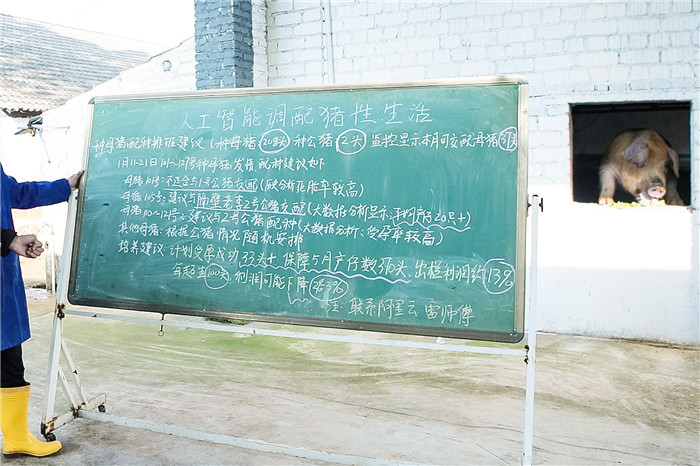 人工智能调配猪性生活
种母猪配种排班建议(种母猪 208头 种公猪 2头 监控显示本月可支配母猪
1月11-21日101~127号种母猪发情,配种建议如下
母猪101号:不适合与1号公猪交配(显分娩死胎率较高)
号:建议与隔壁老麦2号公猪交配(大数据分析显示
母猪110~124号:建议与2号公猪配种(大数据分析:受孕率较高)
其他母猪:根据公猪情况随机安排
培养建议:计划受孕成功33头+保障5月产仔数370头、出栏利润约13%
利润可能下降
注:联系阿里云 雷师傅